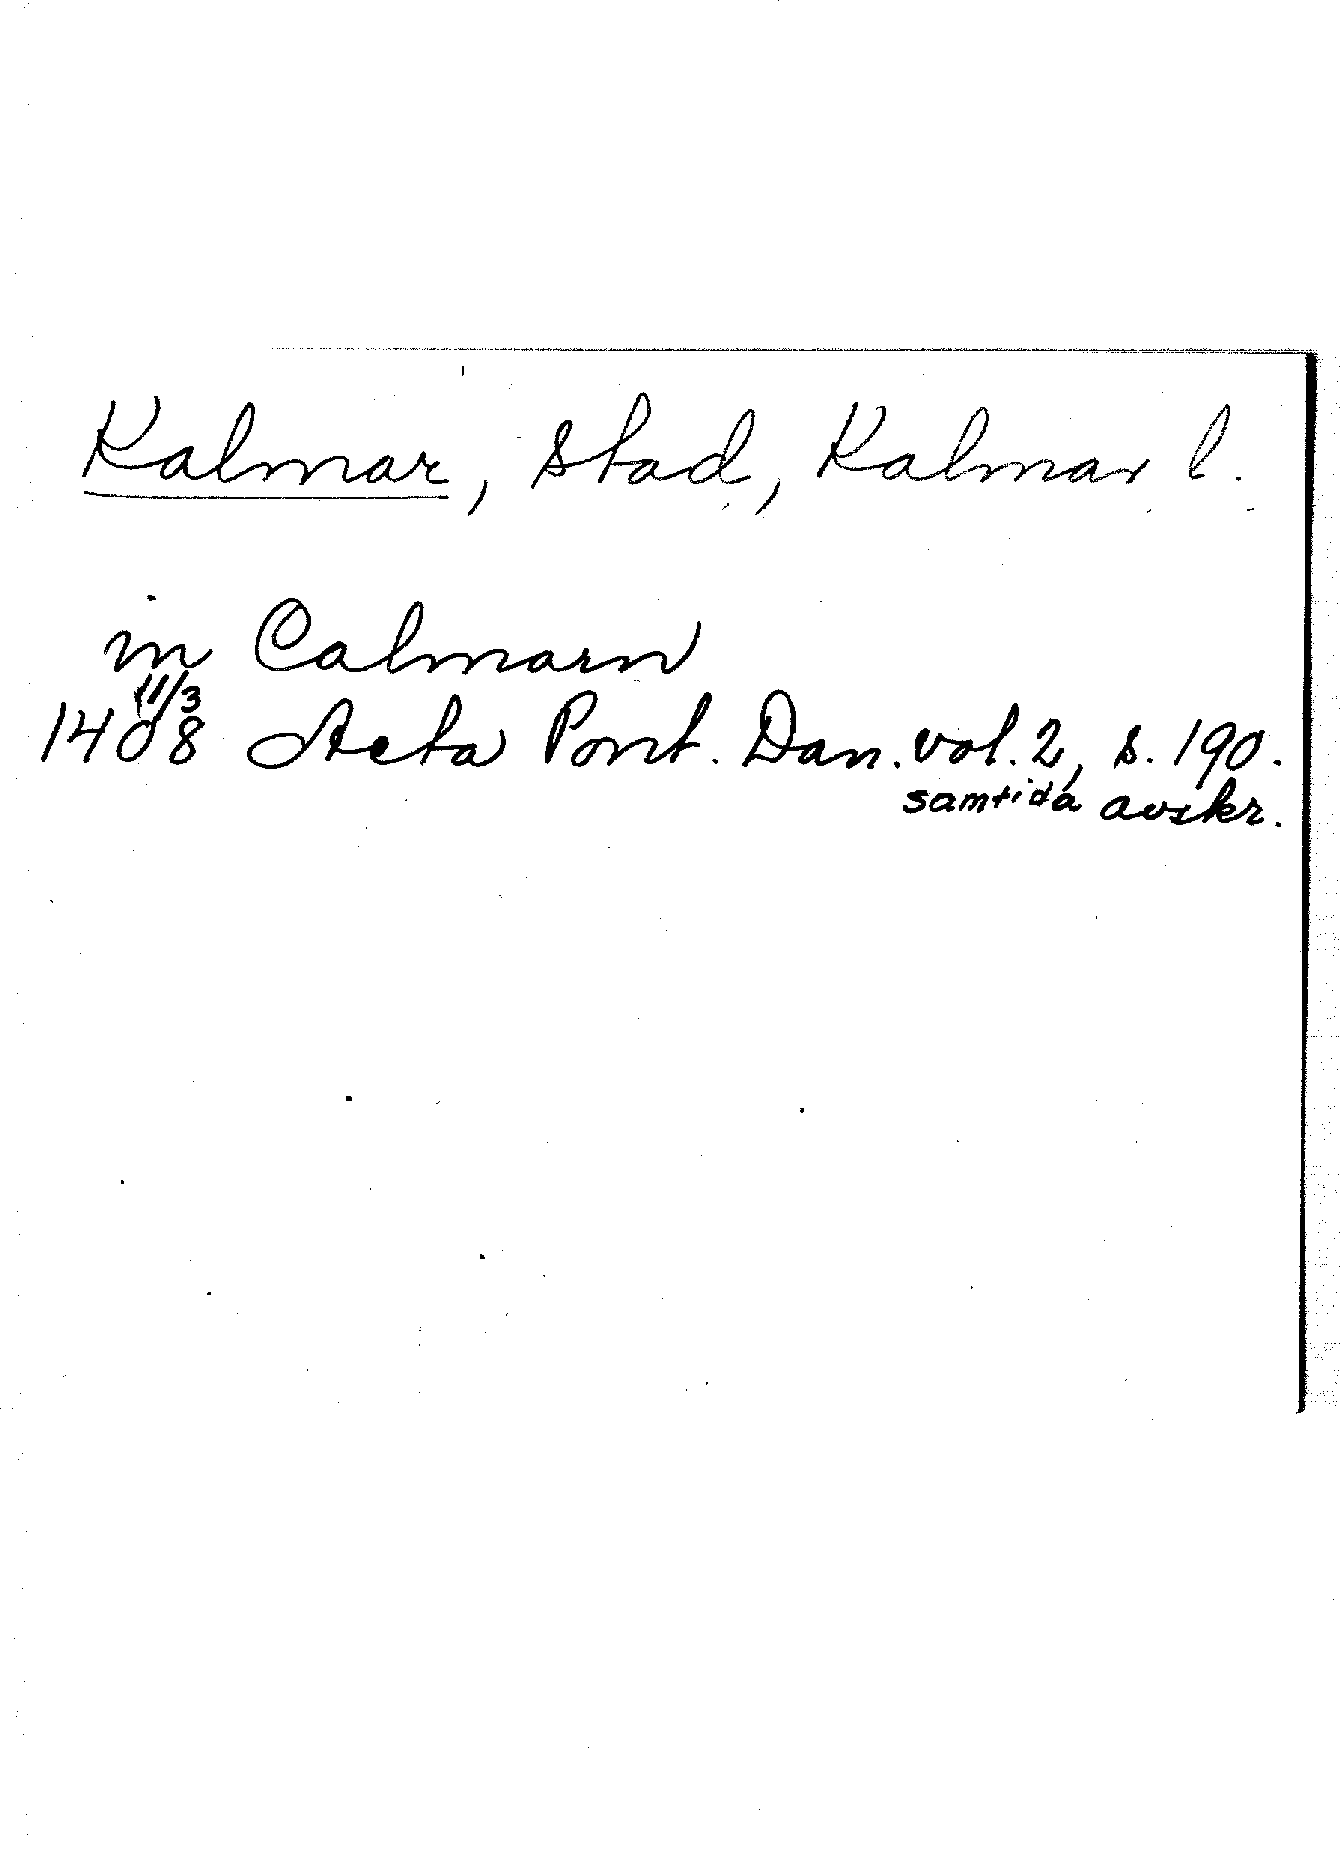 Kalmar, stad, Kalmar l.
in Calmarn
11/3
1408 Acta Pont. Dan. vol. 2, s. 190.
samtida avskr.